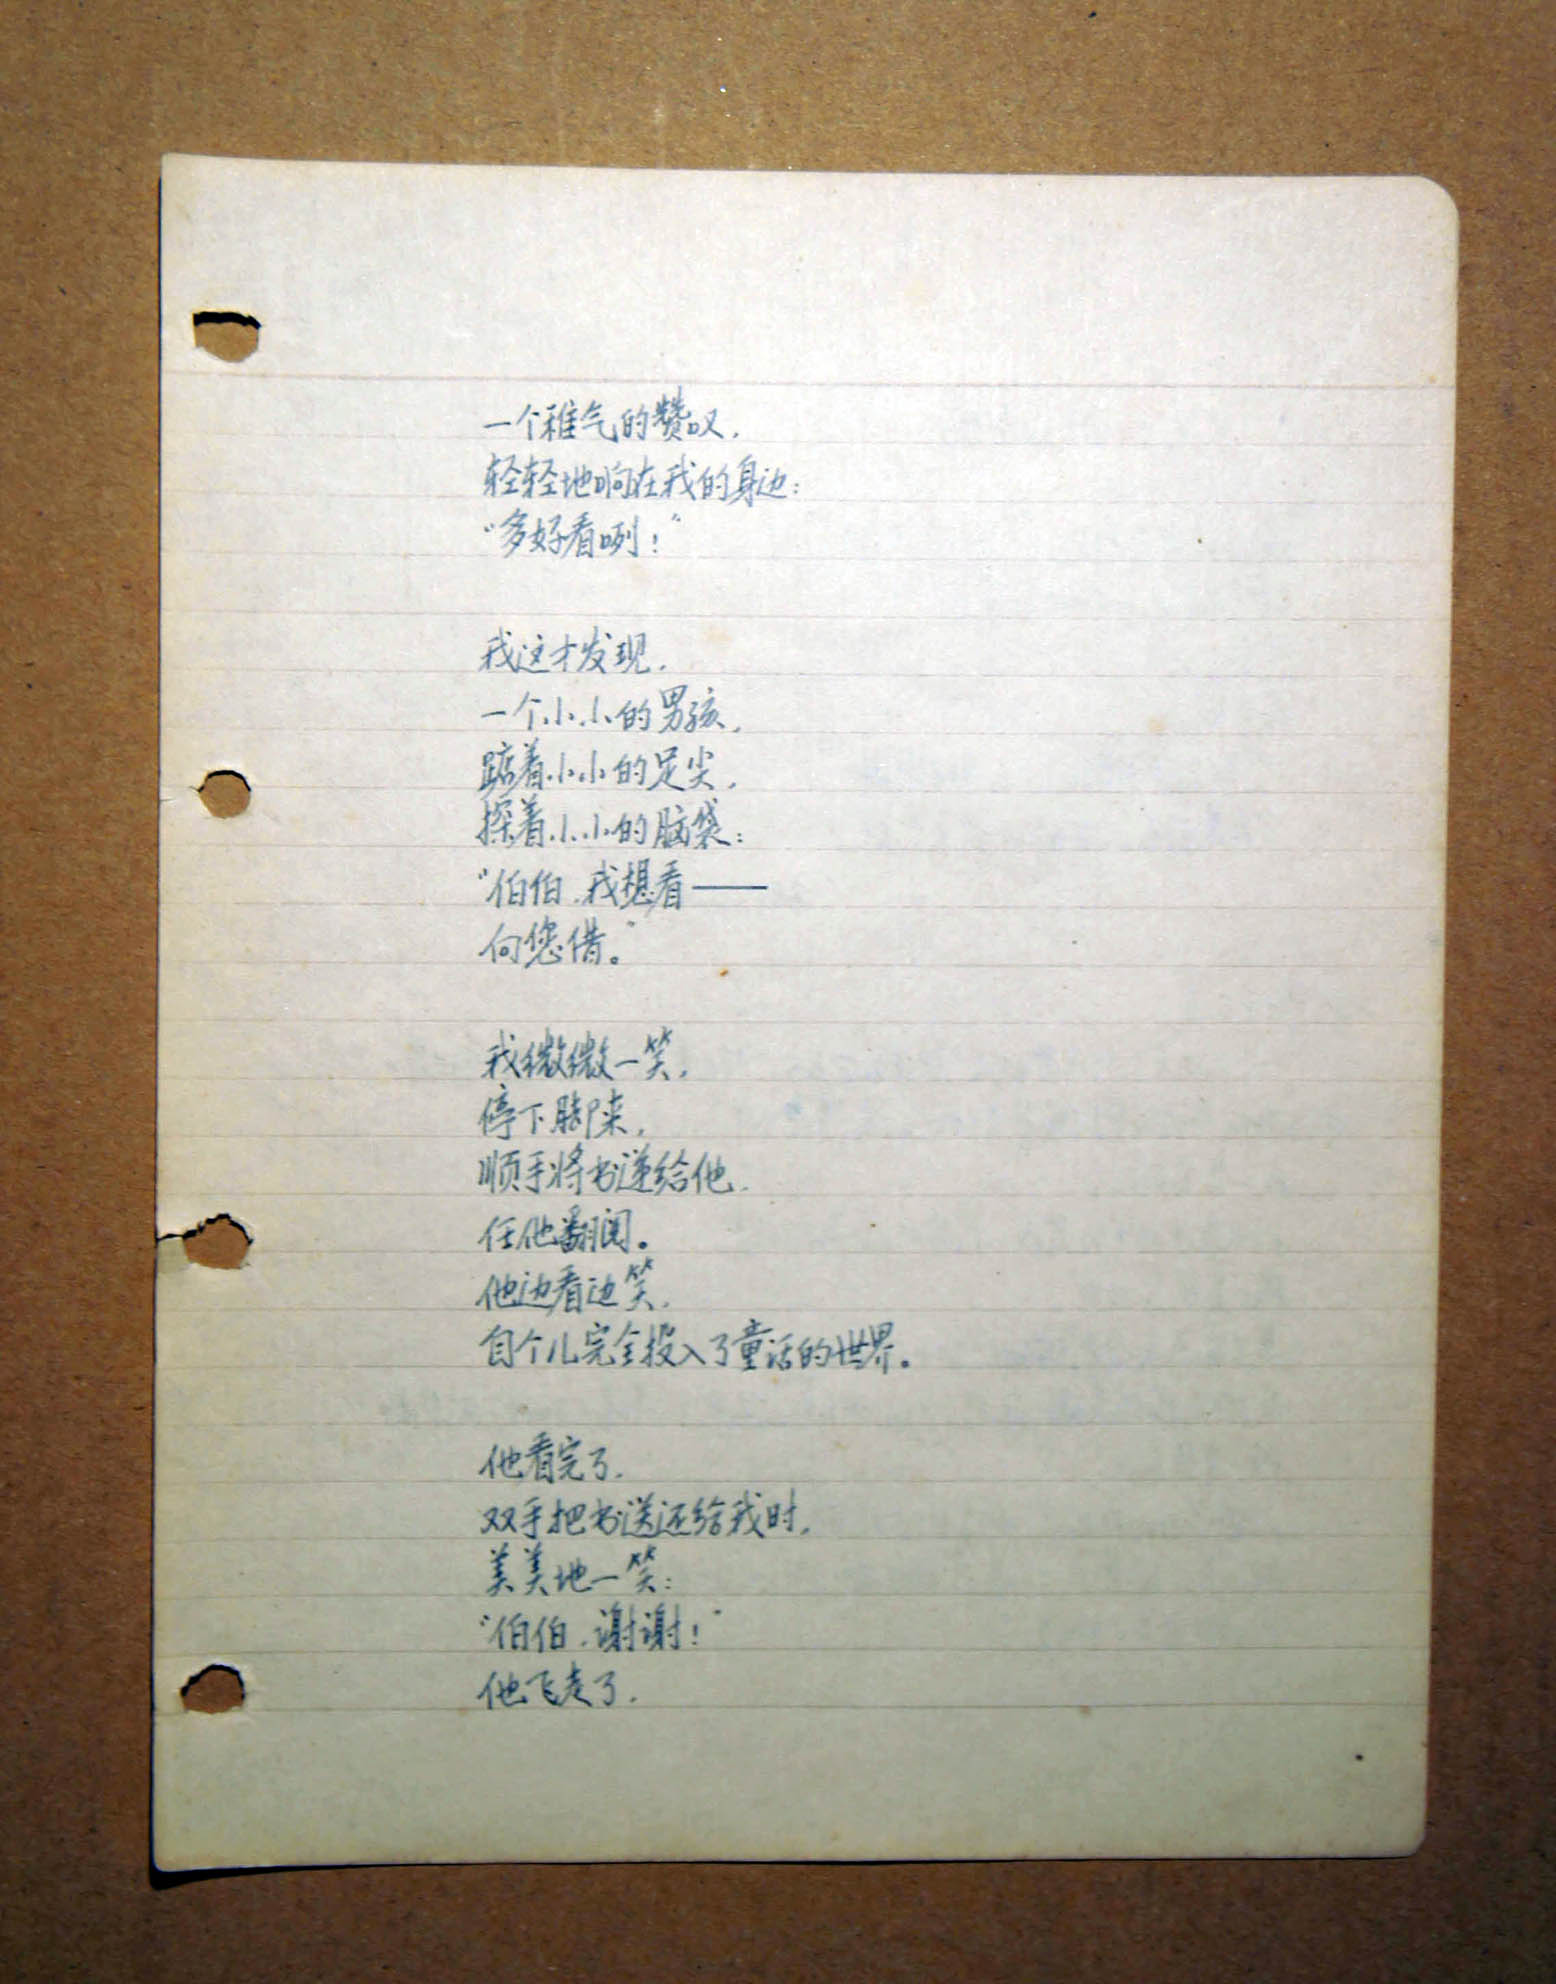 一个稚气的赞叹，
轻轻地响在我的身边：
“多好看咧！”
我这才发现，
一个小小的男孩，
踮着小小的足尖，
探着小小的脑袋：
“伯伯，我想看——
向您借。”
我微微一笑，
停下脚来，
顺手将书递给他，
任他翻阅。
他边看边笑，
自个儿完全投入了童话的世界。
他看完了，
双手把书送还给我时，
美美地一笑：
“伯伯，谢谢！”
他飞走了，